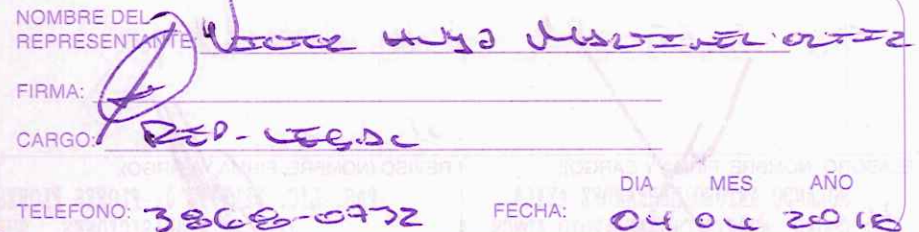 NOMBRE DEL
REPRESENTANTE: VICTOR HUGO MARTINEZ ORTIZ
FIRMA:
CARGO: REP-LEGAL
DIA MES AÑO
TELEFONO: 3868-0732 FECHA: 04 04 2016